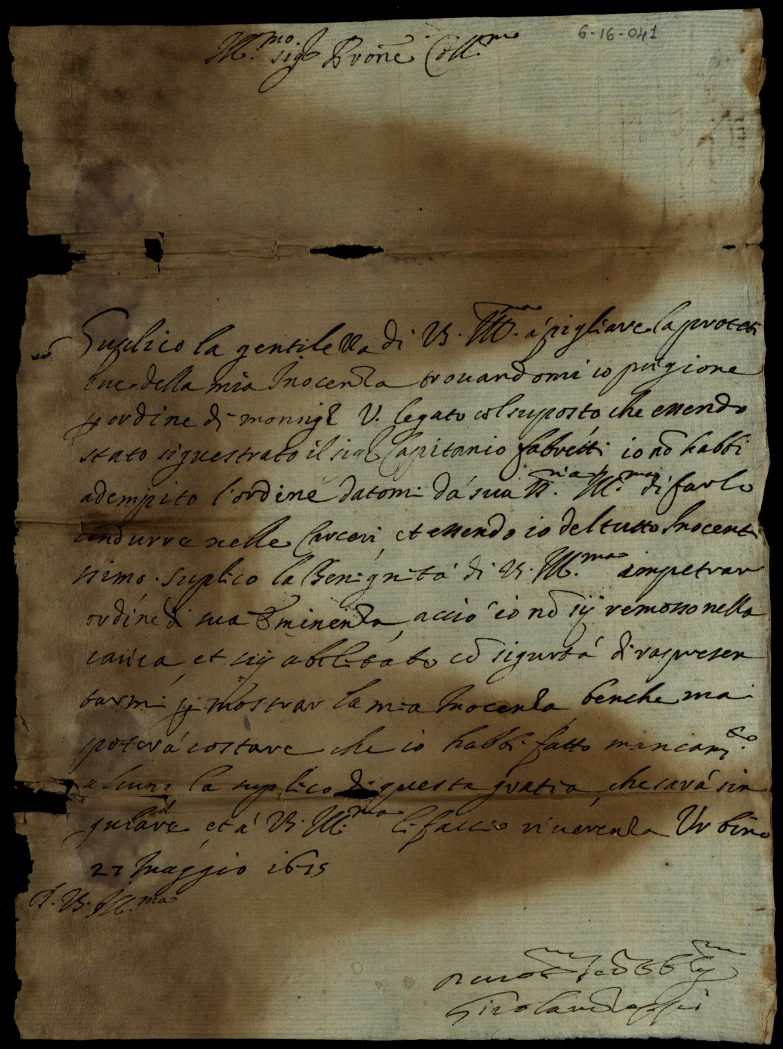 6-16-041
Ill.mo sig.r Prone Coll.mo
Suplico la gentilezza di VS. Ill.ma à pigliare la proteti
one della mia Inocenza trouandomi io prigione
p ordine di monsig.r V. legato col suposto che essendo
stato siquestrato il sig.r Capitanio fabretti io nō habbi
adempito l'ordine datomi da sua Ill.ma di farlo
condurre nelle Carceri, et essendo io del tutto Inocenti
ssimo. suplico la Benignità di VS. Ill.ma a impetrar
ordine di sua Eminenza, acciò io nō sij remosso nella
carica et sij abilitato cō sigurtà di rapresen
tarmi p mostrar la mia Inocenza benche mai
poterà costare che io habbi fatto mancam.to
alcuno la suplico di questa gratia che sarà sin
gulare et à VS. Ill.ma li faccio riuerenza Vrbino
27 Maggio 1675
D. VS. Ill.ma